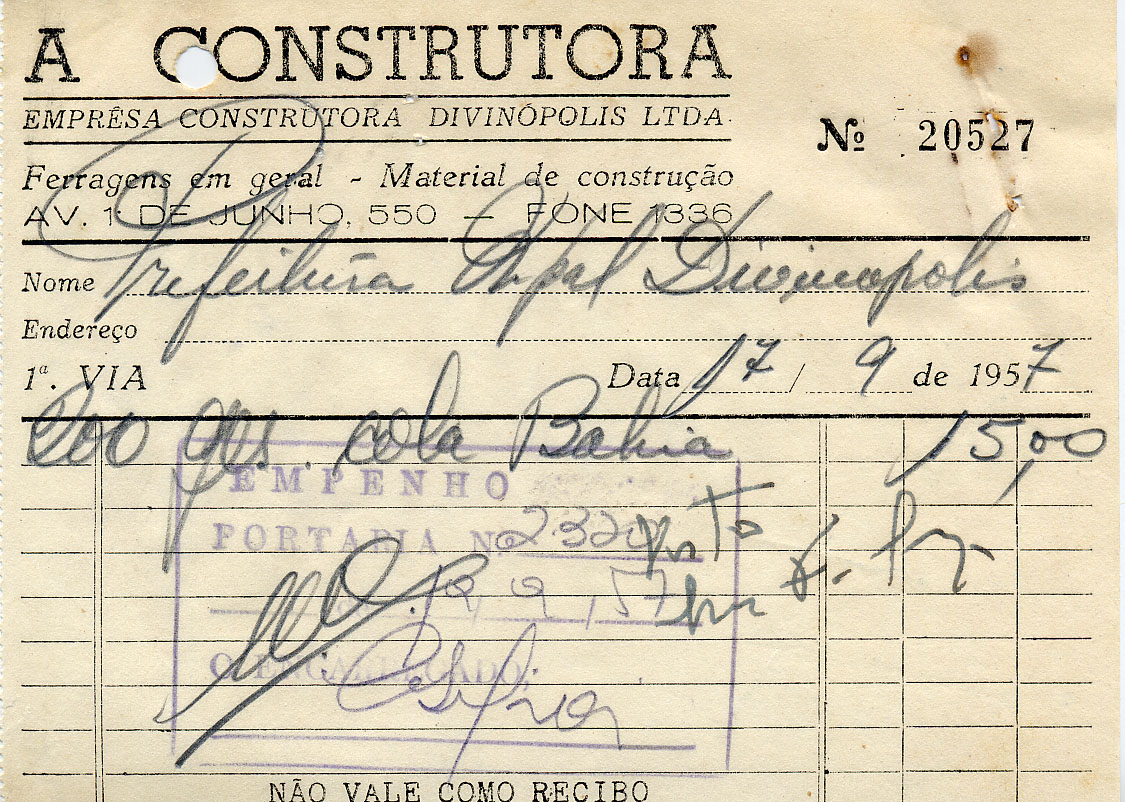 A CONSTRUTORA
EMPRÊSA CONSTRUTORA DIVINÓPOLIS LTDA.
Nº 20527
Ferragens em geral - Material de construção
AV. 1º DE JUNHO, 550 — FONE 1336
Nome Prefeitura Mpal Divinopolis
Endereço
1ª. VIA Data 17 / 9 de 1957
200 grs. cola Bahia 15,00
EMPENHO
PORTARIA Nº 2320
9 , 57
O ENCARREGADO,
NÃO VALE COMO RECIBO